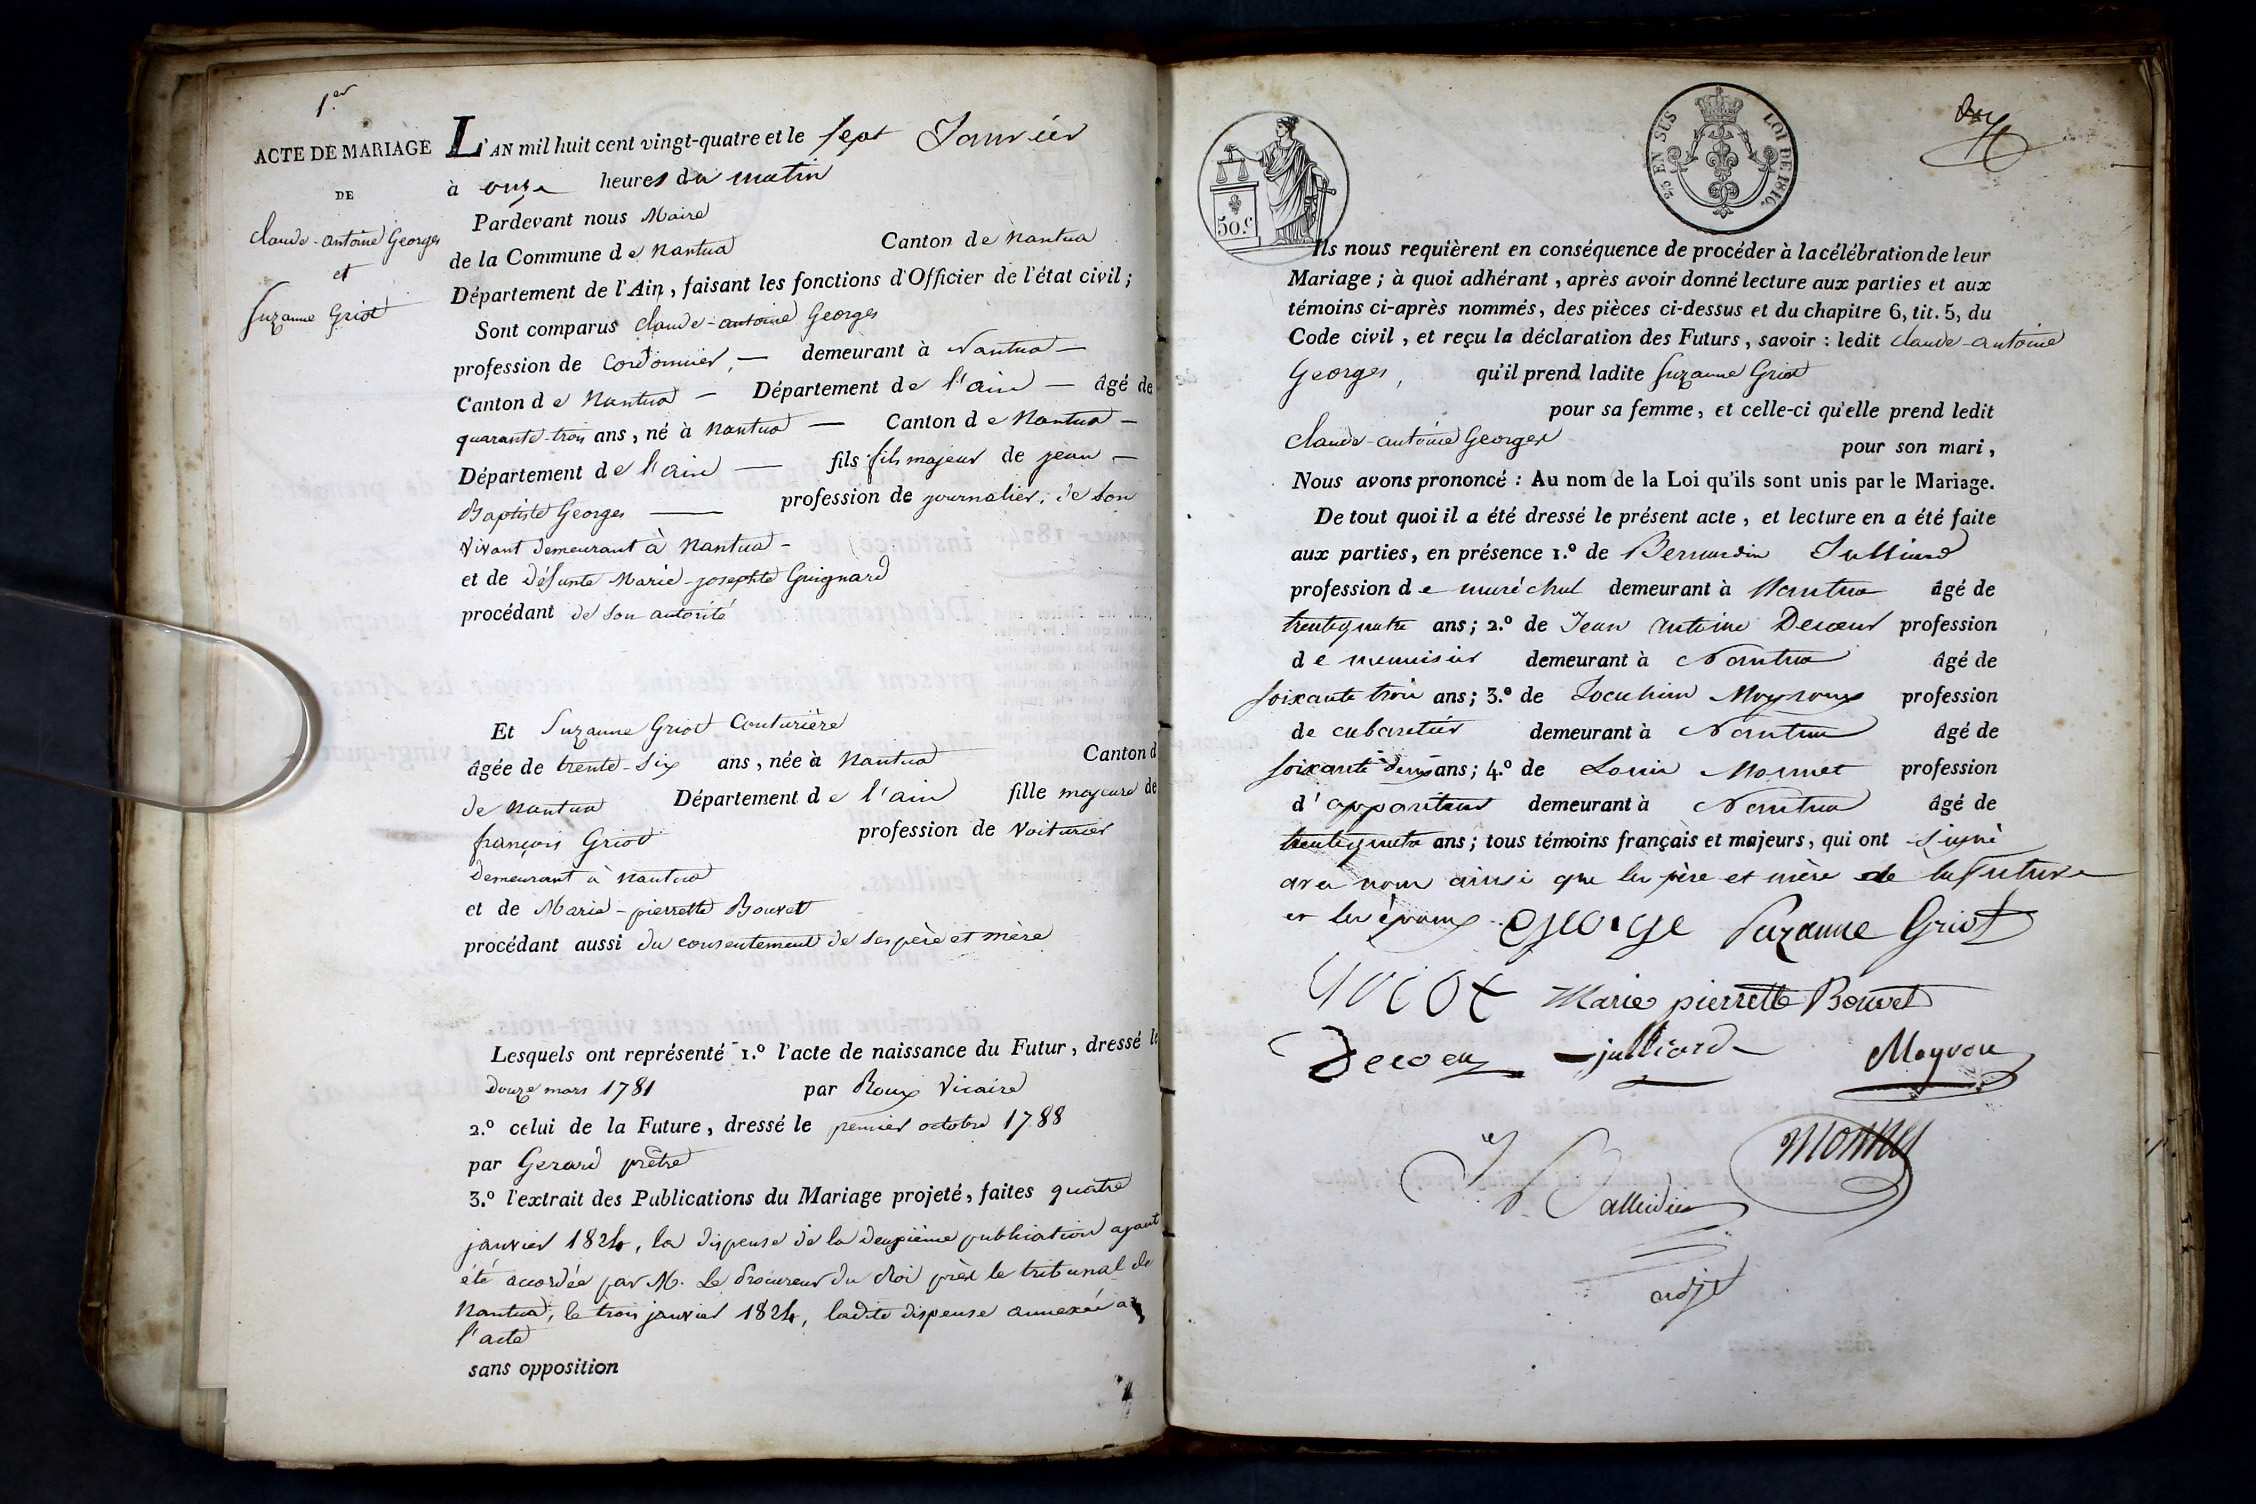 1.er
ACTE DE MARIAGE
DE
Claude-antoine Georges
et
Suzanne Griot
L'AN mil huit cent vingt-quatre et le sept Janvier
à onze heures du matin
Pardevant nous Maire
de la Commune de Nantua Canton de Nantua
Département de l'Ain, faisant les fonctions d'Officier de l'état civil;
Sont comparus Claude-antoine Georges
profession de Cordonnier, — demeurant à Nantua —
Canton de Nantua — Département de l'ain — âgé de
quarante-trois ans, né à Nantua — Canton de Nantua —
Département de l'ain — fils fils majeur de jean —
Baptiste Georges — profession de journalier, de son
vivant demeurant à Nantua -
et de défunte Marie-josephte Guignard
procédant de son autorité
Et Suzanne Griot Couturière
âgée de trente-six ans, née à Nantua Canton d
de Nantua Département de l'ain fille majeure de
françois Griot profession de Voiturier
demeurant à Nantua
et de Marie-pierrette Bouvet
procédant aussi du consentement de ses père et mère
Lesquels ont représenté 1.º l'acte de naissance du Futur, dressé le
douze mars 1781 par Roux Vicaire
2.º celui de la Future, dressé le premier octobre 1788
par Gerard prêtre
3.º l'extrait des Publications du Mariage projeté, faites quatre
janvier 1824, la dispense de la deuxième publication ayant
été accordée par M. Le Procureur du Roi près le tribunal de
Nantua, le trois janvier 1824, ladite dispense annexée a
l'acte
sans opposition
50.c
25 EN SUS LOI DE 1816.
Ils nous requièrent en conséquence de procéder à la célébration de leur
Mariage; à quoi adhérant, après avoir donné lecture aux parties et aux
témoins ci-après nommés, des pièces ci-dessus et du chapitre 6, tit. 5, du
Code civil, et reçu la déclaration des Futurs, savoir: ledit Claude-antoine
Georges, qu'il prend ladite Suzanne Griot
pour sa femme, et celle-ci qu'elle prend ledit
Claude-antoine Georges pour son mari,
Nous avons prononcé: Au nom de la Loi qu'ils sont unis par le Mariage.
De tout quoi il a été dressé le présent acte, et lecture en a été faite
aux parties, en présence 1.º de Bernardin Julliard
profession de maréchal demeurant à Nantua âgé de
trentequatre ans; 2.º de Jean antoine Decoeur profession
de menuisier demeurant à Nantua âgé de
soixante trois ans; 3.º de Joachim Moyroux profession
de cabaretier demeurant à Nantua âgé de
soixante deux ans; 4.º de Louis Monnet profession
d'appariteur demeurant à Nantua âgé de
trentequatre ans; tous témoins français et majeurs, qui ont signé
avec nous ainsi que les père et mère de la future
et les époux. George Suzanne Griot
Griot Marie pierrette Bouvet
Decoeu julliard Moyrou
Monnet
adjt